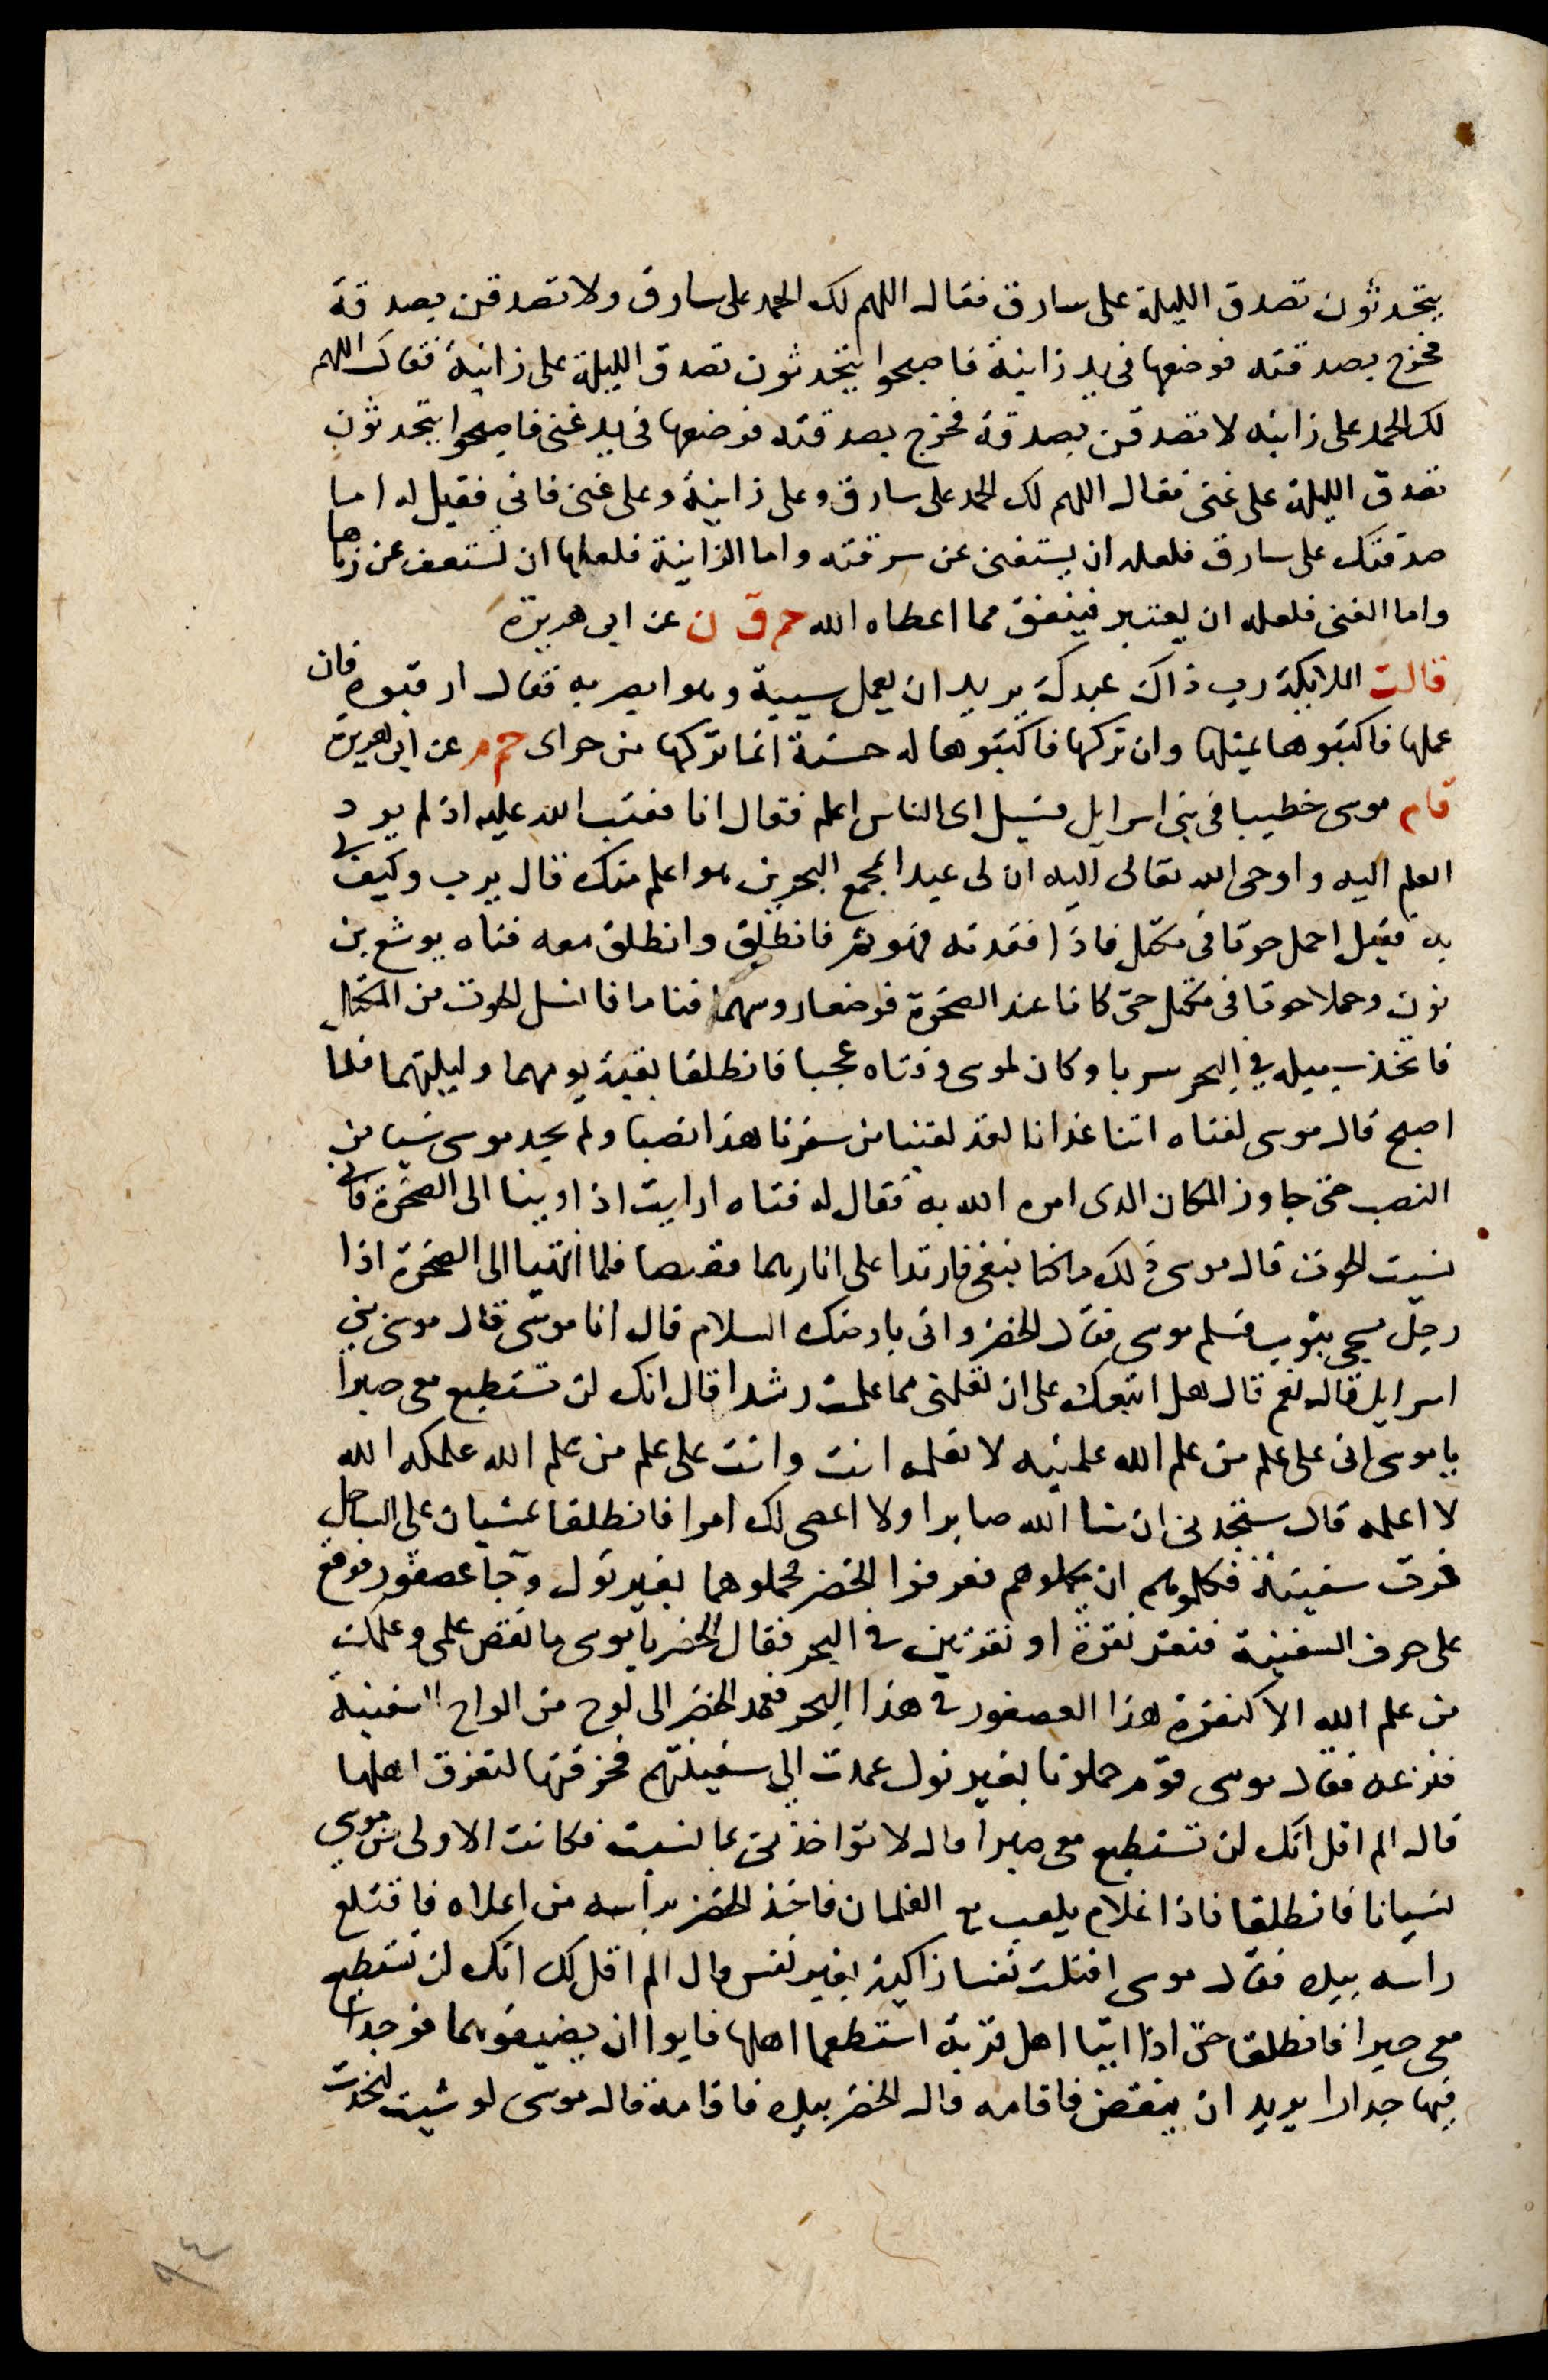 يتحدثون تصدق الليلة على سارق فقال اللهم لك الحمد على سارق ولا تصدقن بصدقة
فخرج بصدقته فوضعها في يد زانية فاصبحوا يتحدثون تصدق الليلة على زانية فقال اللهم
لك الحمد على زانية لا تصدقن بصدقة فخرج بصدقته فوضعها في يد غنى فاصبحوا يتحدثون
تصدق الليلة على غنى فقال اللهم لك الحمد على سارق وعلى زانية وعلى غنى فاتى فقيل له اما
صدقتك على سارق فلعله ان يستعف عن سرقته واما الزانية فلعلها ان تستعف عن زناها
واما الغنى فلعله ان يعتبر فينفق مما اعطاه الله حم ق ن عن ابى هريرة
قالت الملايكة رب ذاك عبدك يريد ان يعمل سيية وهو ابصر به فقال ارقبوه فان
عملها فاكتبوها بمثلها وان تركها فاكتبوها له حسنة انما تركها من جراى حم م عن ابى هريرة
قام موسى خطيبا فى بنى اسرايل فسيل اى الناس اعلم فقال انا فعتب الله عليه اذ لم يرد
العلم اليه واوحى الله تعالى اليه ان لى عبدا بمجمع البحرين هو اعلم منك قال يرب وكيف لى
به فقيل احمل حوتا فى مكتل فاذا فقدته فهو ثم فانطلق وانطلق معه فتاه يوشع بن
نون وحملا حوتا فى مكتل حتى كانا عند الصخرة فوضعا روسهما فناما فانسل الحوت من المكتل
فاتخذ سبيله في البحر سربا وكان لموسى وفتاه عجبا فانطلقا بقية يومهما وليلتهما فلما
اصبح قال موسى لفتاه اتنا غذانا لقد لقينا من سفرنا هذا نصبا ولم يجد موسى شيا من
النصب حتى جاوز المكان الذى امره الله به فقال له فتاه ارايت اذ اوينا الى الصخرة فانى
نسيت الحوت قال موسى ذلك ما كنا نبغى فارتدا على اثارهما قصصا فلما انتهيا الى الصخرة اذا
رجل مسجى بثوب فسلم موسى فقال الخضر وانى بارضك السلام قال انا موسى قال موسى بنى
اسرايل قال نعم قال هل اتبعك على ان تعلمنى مما علمت رشدا قال انك لن تستطيع معى صبرا
يا موسى انى على علم من علم الله علمنيه لا تعلمه انت وانت على علم من علم الله علمكه الله
لا اعلمه قال ستجدنى ان شا الله صابرا ولا اعصى لك امرا فانطلقا يمشيان على الساحل
فمرت سفينة فكلموهم ان يحملوهم فعرفوا الخضر فحملوهما بغير نول وجا عصفور فوقع
على حرف السفينة فنقر نقرة او نقرتين في البحر فقال الخضر يا موسى ما نقص علمى وعلمك
من علم الله الا كنقرة هذا العصفور في هذا البحر فعمد الخضر الى لوح من الواح السفينة
فنزعه فقال موسى قوم حملونا بغير نول عمدت الى سفينتهم فخرقتها لتغرق اهلها
قال الم اقل انك لن تستطيع معى صبرا قال لا تواخذنى بما نسيت فكانت الاولى من موسى
نسيانا فانطلقا فاذا غلام يلعب مع الغلمان فاخذ الخضر براسه من اعلاه فاقتلع
راسه بيده فقال موسى اقتلت نفسا زاكية بغير نفس قال الم اقل لك انك لن تستطيع
معى صبرا فانطلقا حتى اذا اتيا اهل قرية استطعما اهلها فابوا ان يضيفوهما فوجدا
فيها جدارا يريد ان ينقض فاقامه قال الخضر بيده فاقامه قال موسى لو شيت لتخذت
٩٤